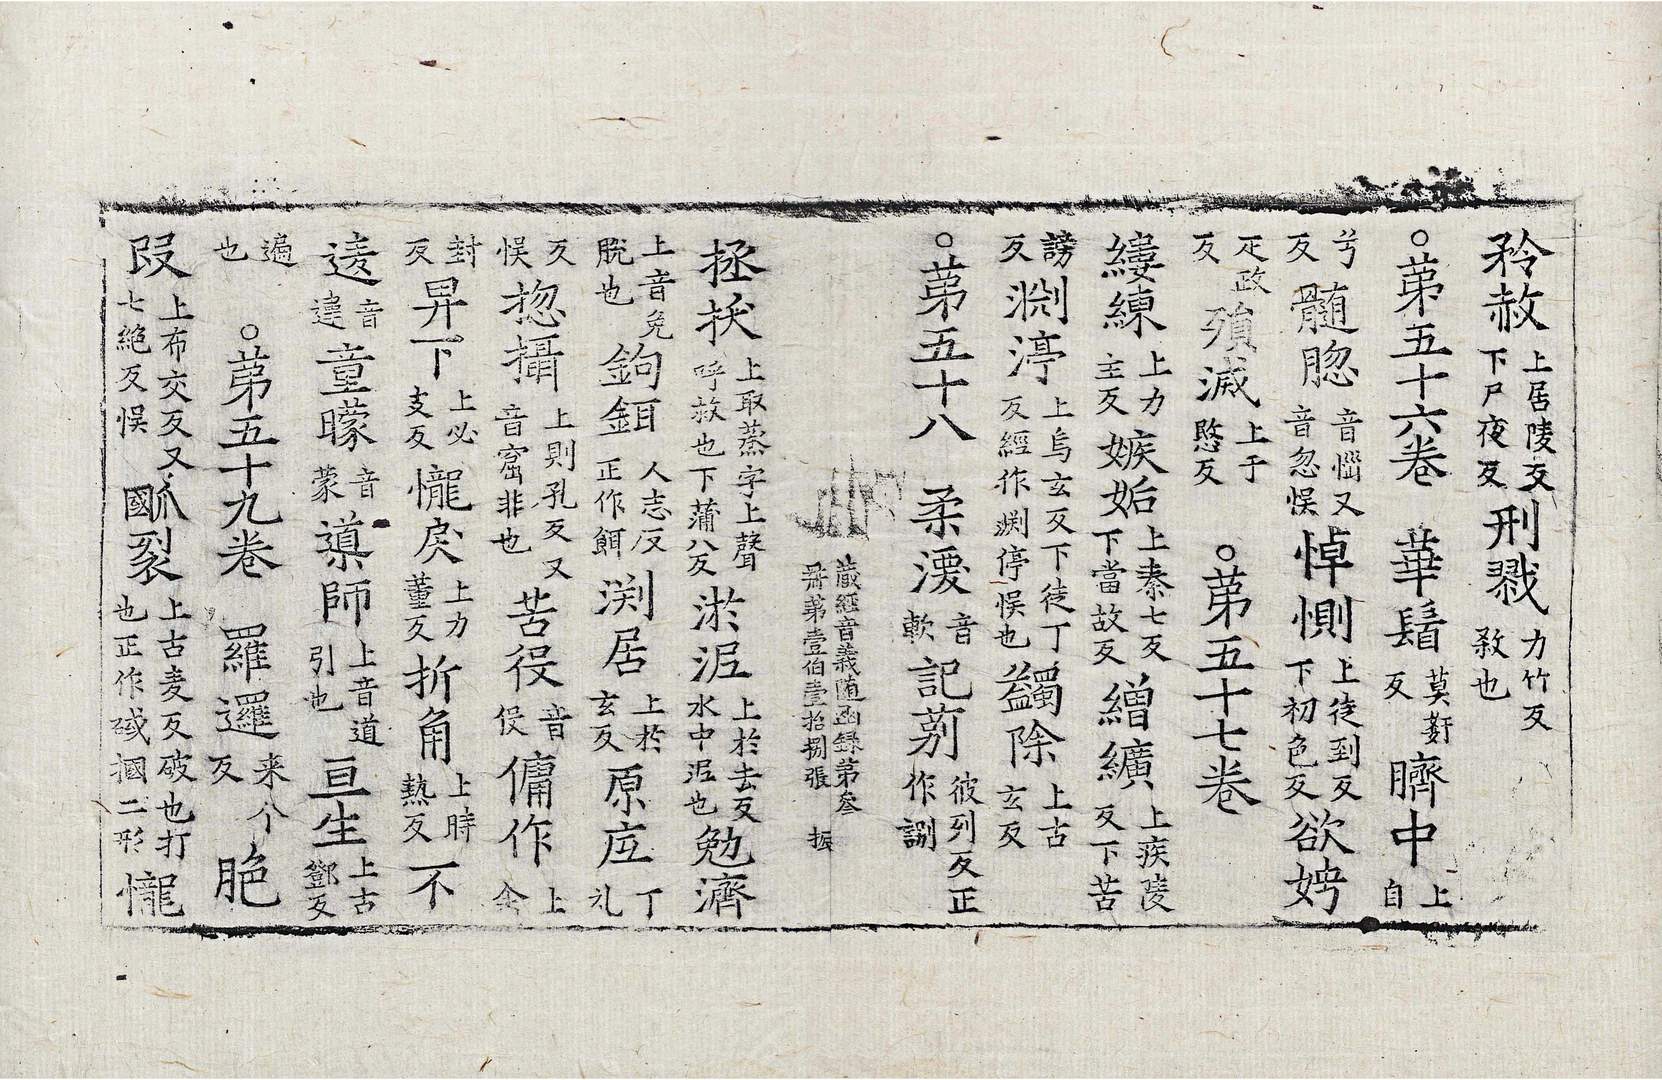 矜赦上居陵反下尸夜反刑戮力竹反敎也
○苐五十六卷 華鬘莫䯽反臍中上自
兮反髄䐊音惱又音忽悮悼惻上徒到反下初色反欲娉
疋政反殞滅上于愍反 ○苐五十七卷
縷練上力主反嫉妬上秦七反下當故反繒纊上疾陵反下苦
謗反渊渟上烏玄反下徒丁反經作渊停悮也蠲除上古玄反
○苐五十八 柔濡音軟記莂彼列反正作䚯
蔵經音義随函録苐叄 冊苐壹伯壹拾捌張 振
拯㧞上取蒸字上聲呼救也下蒲八反淤泥上於去反水中泥也勉濟
上音免脫也鉤鉺人志反正作餌渊居上於玄反原㡳丁礼
反悮揔攝上則孔反又音窟非也苦役音伇傭作上余
封反昇下上必支反㦕戾上力董反折角上時熱反不
逺音違童矇音蒙導師上音道引也亘生上古鄧反
遍也 ○苐五十九卷 羅邏来个反脃
㱾上布交反又七絶反悮𤬁裂上古麦反破也打也正作㦯摑二形㦕